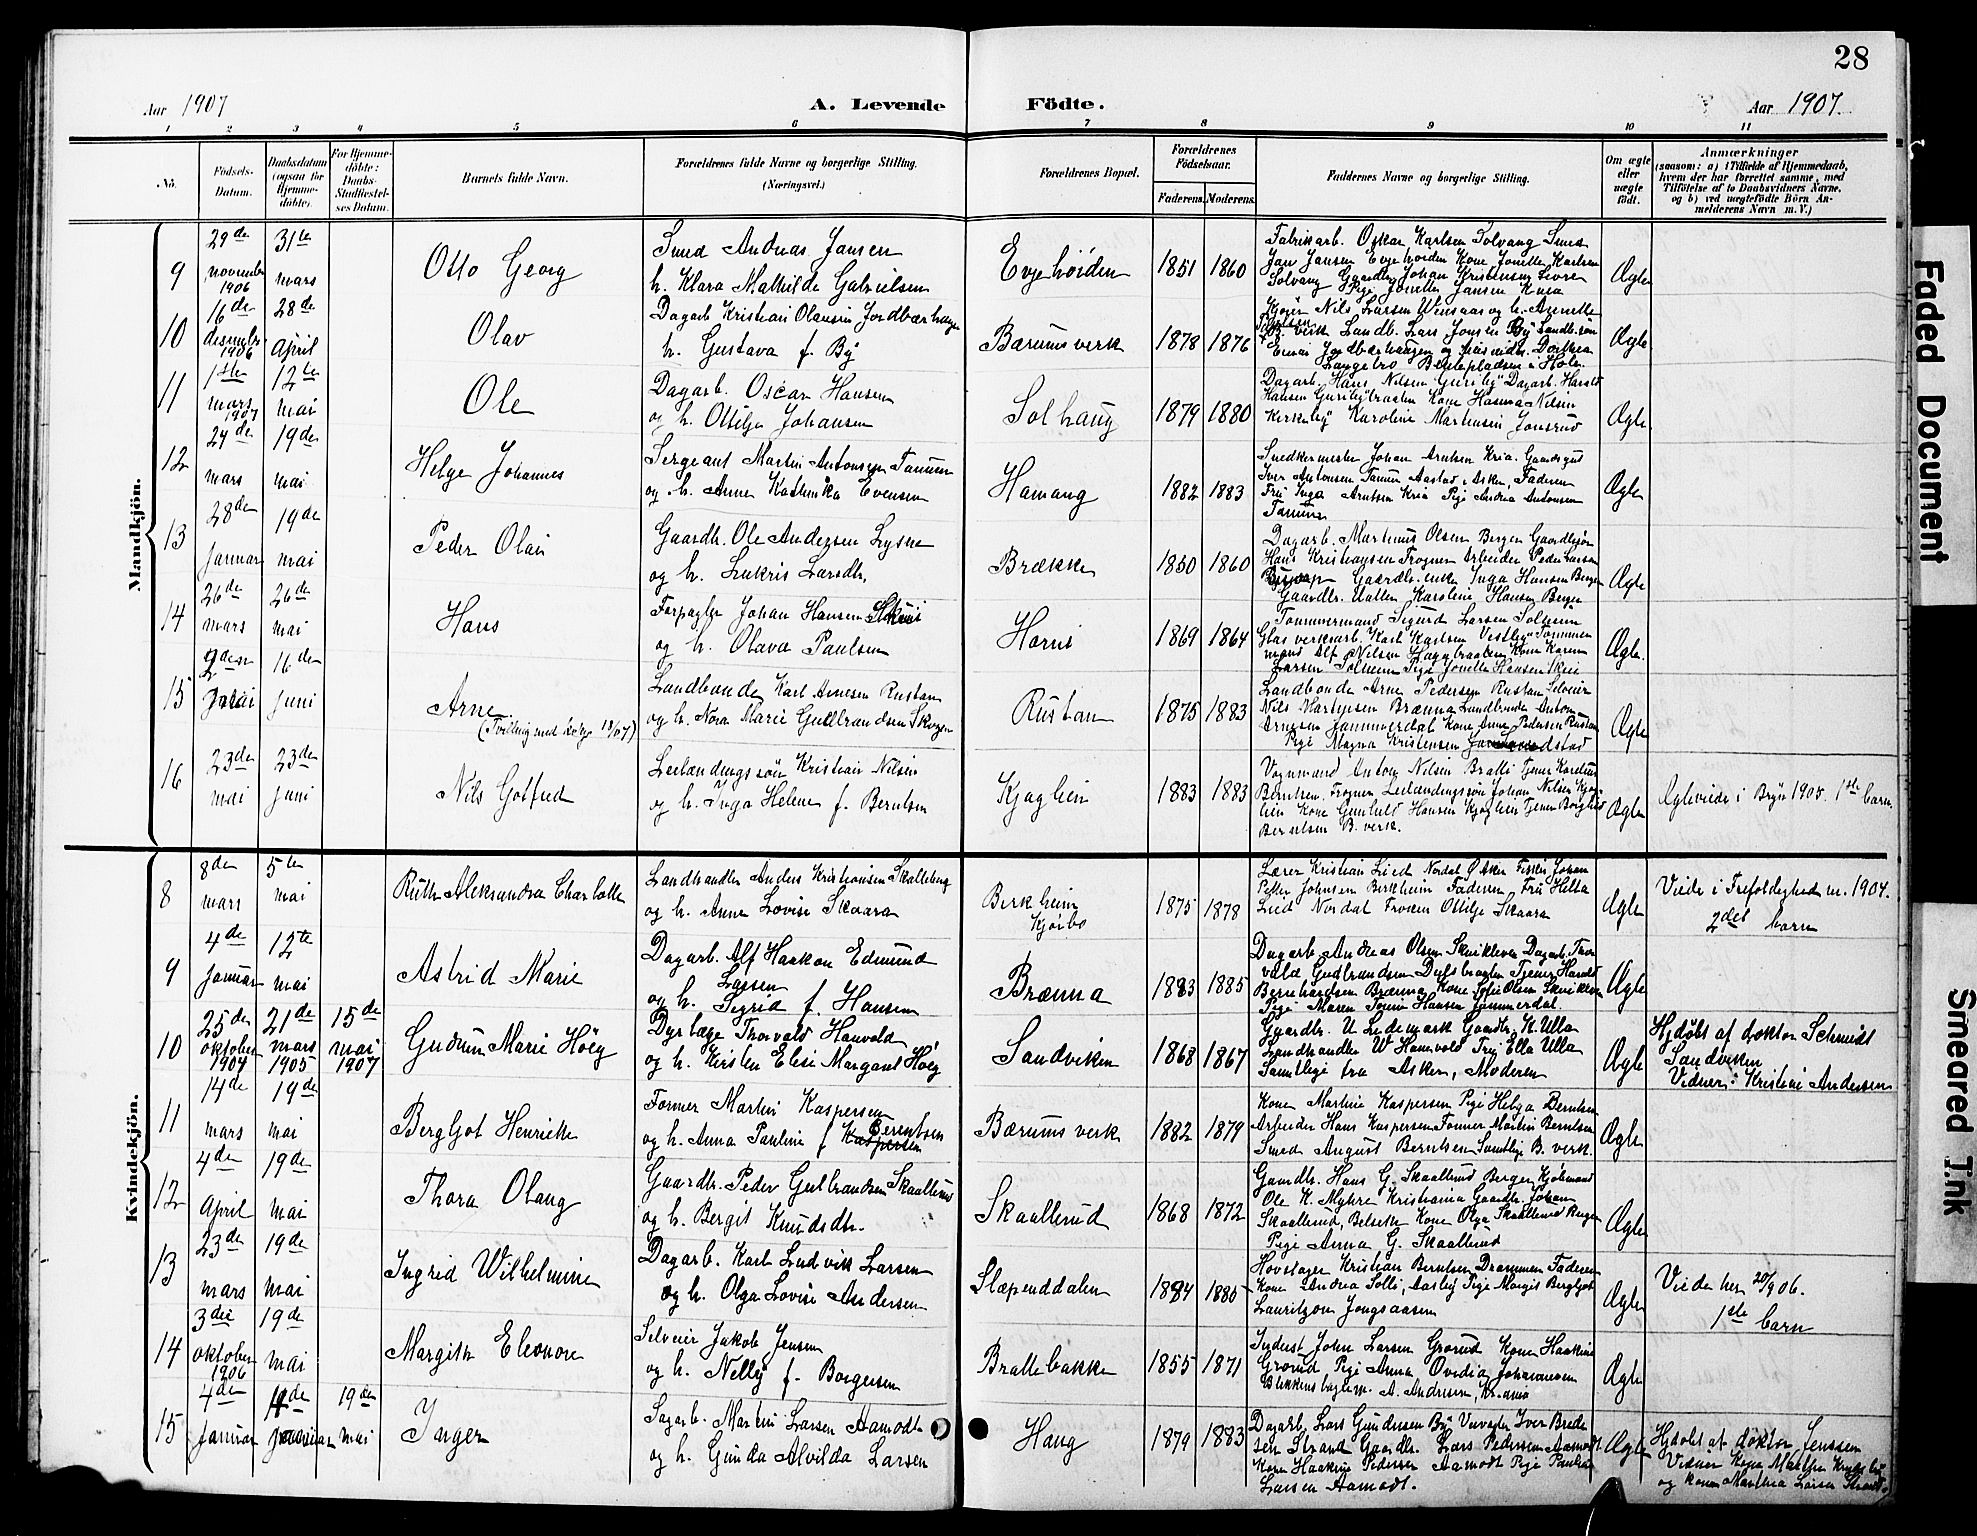 28
Aar 1907
A. Levende Födte.
Aar 1907.
1 2 3 4 5 6 7 8 9 10 11
No.
Födsels-Datum.
Daabsdatum (ogsaa for Hjemme-döbte).
For Hjemme-döbte: Daabs-Stadfæstel-ses Datum.
Barnets fulde Navn.
Forældrenes fulde Navne og borgerlige Stilling.
(Næringsvei.)
Forældrenes Bopæl.
Forældrenes Födselsaar.
Faderens. Moderens.
Faddernes Navne og borgerlige Stilling.
Om ægte eller uægte födt.
Anmærkninger
(saasom: a) i Tilfælde af Hjemmedaab,
hvem der har forrettet samme, med
Tilföielse af to Daabsvidners Navne,
og b) ved uægtefödte Börn An-
melderens Navn m. V.)
Mandkjön.
9 29de november 1906 31te mars
Otto Georg
Smed Andreas Jansen
h. Klara Mathilde Gabrielsen
Evjehöiden 1851 1860
Fabrikarb. Oskar Karlsen Solvang Smed
Jan Jansen Evjehöiden Kone Jonette Karlsen
Solvang Gaardbr. Johan Kristensen
Pige Jonette Jansen
Ægte
10 16de desember 1906 28de April
Olav
Dagarb Kristian Olausen Jordbærhaugen
h. Gustava f. By
Bærums verk 1878 1876
Nils Larsen h. Annette
B. verk Landb. Lars Jonsen By Landb. søn
Einar Jordbærhaugen
Ægte
11 1ste mars 1907 12te mai
Ole
Dagarb. Oscar Hansen
og h. Ottilje Johansen
Solhaug 1879 1880
Dagarb. Hans Nilsen Guriby Dagarb. Harald
Hansen Guribybraaten Kone Hanna Nilsen
Kirkeby Karoline Martinsen Jonsrud
Ægte
12 24de mars 19de mai
Helge Johannes
Sergeant Martin Antonsen Tanum
og h. Anna Kathinka Evensen
Hamang 1882 1883
Snedkermester Johan Arntsen Kria. Gaardgut
Iver Antonsen Tanum Aastad i Asker, Faderen
Frü Inga Arntsen Kria Pige Andrea Antonsen
Tanum
Ægte
13 28de Januar 19de mai
Peder Olai
Gaardbr. Ole Andersen Lysne
og h. Lukris Larsdtr.
Brække 1850 1860
Dagarb. Martinus Olsen Berger Gaardbrsøn
Hans Kristiansen Frogner Arbeider Peder Larsen
Gaardbr. enke Inga Hansen Berger
Gaardbr. datter Karoline Hansen Berger
Ægte
14 26de mars 26de mai
Hans
Forpagter Johan Hansen Skui
og h. Olava Paulsen
Horni 1869 1864
Tømmermand Sigurd Larsen Solheim
Glasverksarb. Karl Karlsen Vestby Tømmer
mand Alf Nilsen Haugbraaten Kone Karen
Larsen Solheim Pige Jonette Hansen Skui
Ægte.
15 2den mai 16de Juni
Arne
(Tvilling med
Landbonde Karl Arnesen Rustan
og h. Nora Marie Gulbrandsen Skogen
Rustan 1875 1883
Landbonde Arne Pedersen Rustan Selveier
Nils Martinsen Brænna Landbonde Anton
Arnesen Jammerdal Kone Anne Pedersen Rustan
Pige Magna Kristensen
Ægte
16 23de mai 23de Juni
Nils Gotfred
Leilændingsøn Kristian Nilsen
og h. Inga Helene f. Berntsen
Kjaglien 1883 1883
Vognmand Anton Nilsen Bratli Tjener Karelius
Berntsen. Frogner Leilændingsøn Johan Nilsen Kjag-
lien Kone Gunhild Hansen Kjaglien Tjener Borghild
Berntsen B. verk.
Ægte
Ægteviede i Bryn 1905. 1ste barn.
Kvindekjön.
8 8de mars 5te mai
Ruth Aleksandra Charlotte
Landhandler Anders Kristiansen Skalleberg
og h. Anna Lovise Skaara
Berkheim
Kjørbo
1875 1878
Lærer Kristian Lied Nordal Ø Asker Fisker Johan
Petter Johnsen Berkheim Faderen Frü Helta
Lied Nordal Frøken Ottilje Skaara
Ægte
Viede i Trefoldighed m. 1904.
2det barn
9 4de Januar 12te mai
Astrid Marie
Dagarb. Alf Haakon Edmund
Larsen
og h. Sigrid f. Hansen
Brænna 1883 1885
Dagarb Andreas Olsen Skuikleven Dagarb. Thor
vald Gudbrandsen Tjener Harald
Bernhardsen Brænna Kone Sofie Olsen Skuikleven
Pige Maren Tomine Hansen Jammerdal
Ægte
10 25de oktober 1904 21de mars 1905 15de mai 1907
Gudrun Marie Höeg
Dyrlæge Thorvald Hanvold
og h. Kirsten Elise Margaret Höeg
Sandviken 1868 1867
Gaardbr. U Ledemark Gaardbr. K. Ulla
Landhandler W Hanevold Frü Ella Ulla
Samtlige fra Asker, Moderen
Ægte
Hjdöbt af doktor Schmidt
Sandviken
Vidner: Kristine Andersen
11 14de mars 19de mai
Bergljot Henriette
Former Martin Kaspersen
og h. Anna Pauline f Kaspersen Berentsen
Bærums verk 1882 1879
Kone Martine Kaspersen Pige Helga Berntsen
Arbeider Hans Kaspersen Former Martin Berntsen
Smed August Berntsen Samtlige B. verk.
Ægte
12 4de April 19de mai
Thora Olaug
Gaardbr. Peder Gulbrandsen Skaallerud
og h. Bergit Knudsdtr.
Skaallerud 1868 1872
Gaardbr. Hans G. Skaallerud Berger Kjøbmand
Ole K. Myhre Kristiania Gaardbr. Johan
Skaallerud, Belset Kone Olga Skaallerud Berger
Pige Anna G. Skaallerud
Ægte
13 23de mars 19de mai
Ingrid Wilhelmine
Dagarb. Karl Ludvik Larsen
og h. Olga Lovise Andersen
Slæpenddalen 1884 1885
Hovslager Kristian Berntsen Drammen Faderen
Kone Andrea Solli, Aasly Pige Margit Bergljot
Lauritzon Jongsaasen
Ægte
Viede her 20/9 06.
1ste barn
14 3die oktober 1906 19de mai
Margith Eleonore
Selveier Jakob Jensen
og h. Nelly f. Borgersen
Brattebakke 1855 1871
Inderst John Larsen Grorud Kone Haakine
Grorud Pige Anna Ovedia Johannesen
Blikkenslagerm. A. Andresen, Kr.ania
Ægte
15 4de Januar 4de Januar 19de mai
Inger
Dagarb. Martin Larsen Aamodt
og h. Gunda Alvilda Larsen
Haug 1879 1883
Dagarb. Lars Gundersen By Iver Brede
sen Strand Gaardbr. Lars Pedersen Aamodt
Kone Haakine Pedersen Aamodt Pige Pauline
Larsen Aamodt.
Ægte
Hjdöbt af doktor Jenssen
Vidner Kone Marthe
og Kone Marthea Larsen Strand.
Faded Document
Smeared Ink